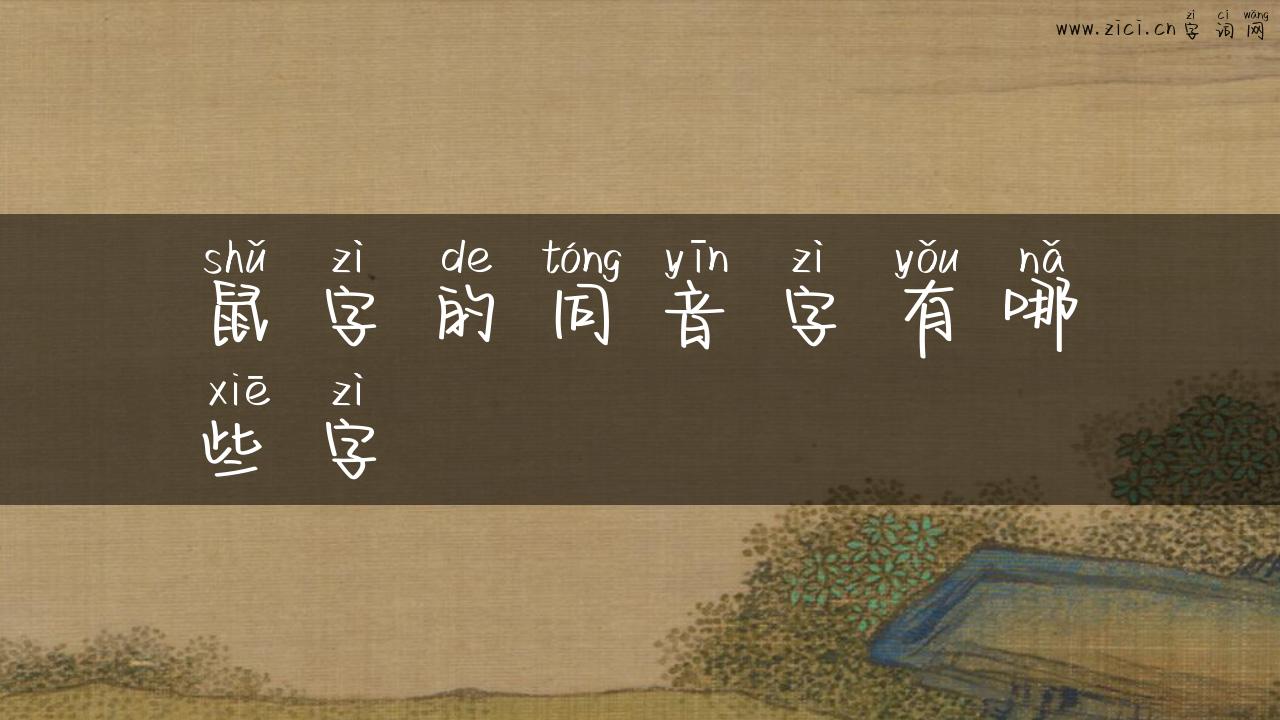 zì cí wǎng
www.zici.cn 字词网
shǔ zì de tóng yīn zì yǒu nǎ
鼠字的同音字有哪
xiē zì
些字